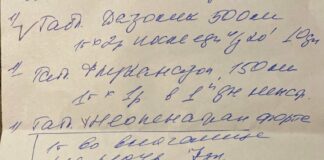 1) Таб. Дазолик 500мг
1т × 2р после еды 10дн
1) Таб. Флуконазол 150мг
1т × 1р в 1й дн менстр.
1) Таб. Неопенотран форте
1т во влагалище
7дн